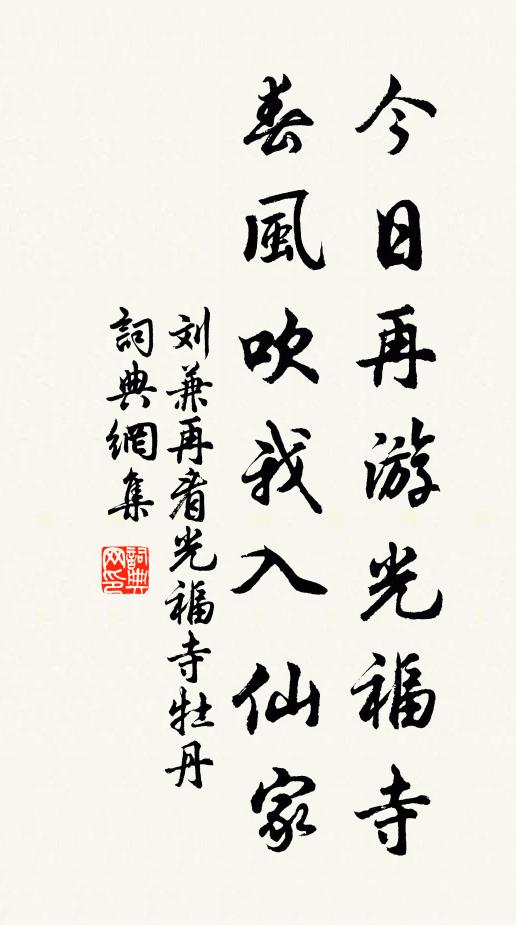 今日再游光福寺
春風吹我入仙家
刘兼再看光福寺牡丹
詞典網集
詞典网印